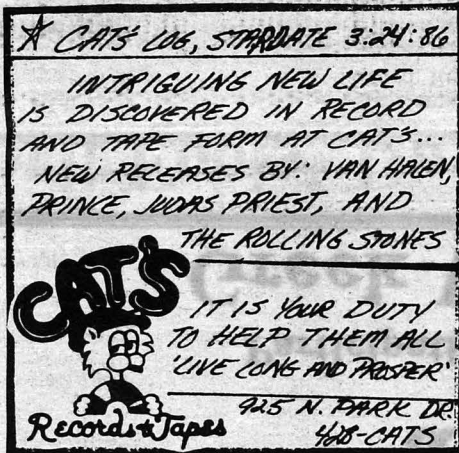 ☆ CAT'S LOG, STARDATE 3:24:86
INTRIGUING NEW LIFE
IS DISCOVERED IN RECORD
AND TAPE FORM AT CAT'S...
NEW RELEASES BY: VAN HALEN,
PRINCE, JUDAS PRIEST, AND
THE ROLLING STONES
CAT'S
Records & Tapes
IT IS YOUR DUTY
TO HELP THEM ALL
'LIVE LONG AND PROSPER'
925 N. PARK DR.
428-CATS